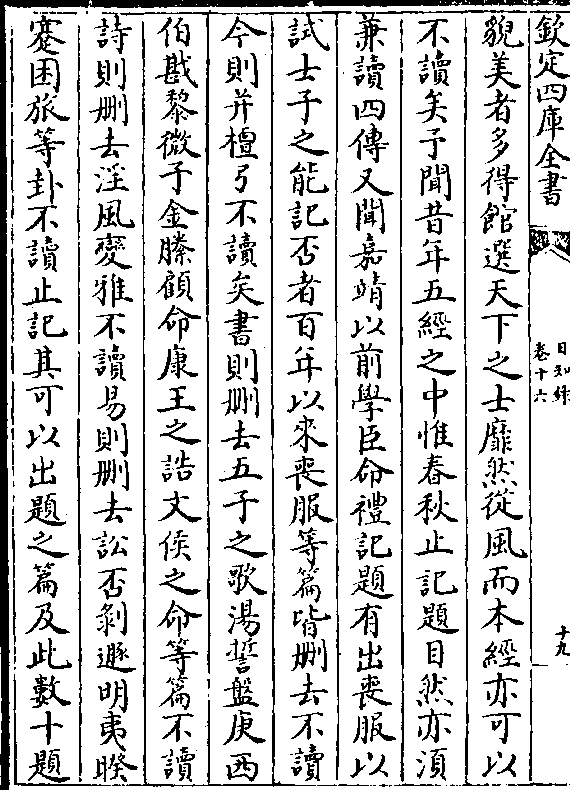 欽定四庫全書
日知錄
卷十六
十九
貌美者多得館選天下之士靡然從風而本經亦可以
不讀矣予聞昔年五經之中惟春秋止記題目然亦須
兼讀四傳又聞嘉靖以前學臣命禮記題有出喪服以
試士子之能記否者百年以來喪服等篇皆刪去不讀
今則并檀弓不讀矣書則刪去五子之歌湯誓盤庚西
伯戡黎微子金縢顧命康王之誥文侯之命等篇不讀
詩則刪去淫風變雅不讀易則刪去訟否剝遯明夷睽
蹇困旅等卦不讀止記其可以出題之篇及此數十題